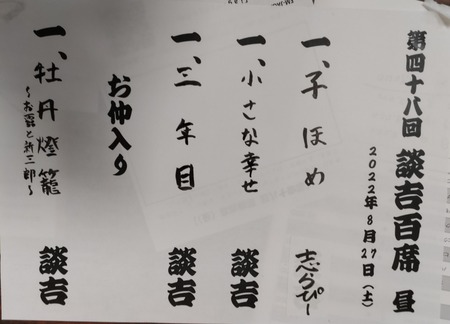 第四十八回 談吉百席 昼
2022年8月27日(土)
一、子ほめ 志らぴー
一、小さな幸せ 談吉
一、三年目 談吉
お仲入り
一、牡丹燈籠 談吉
〜お露と新三郎〜